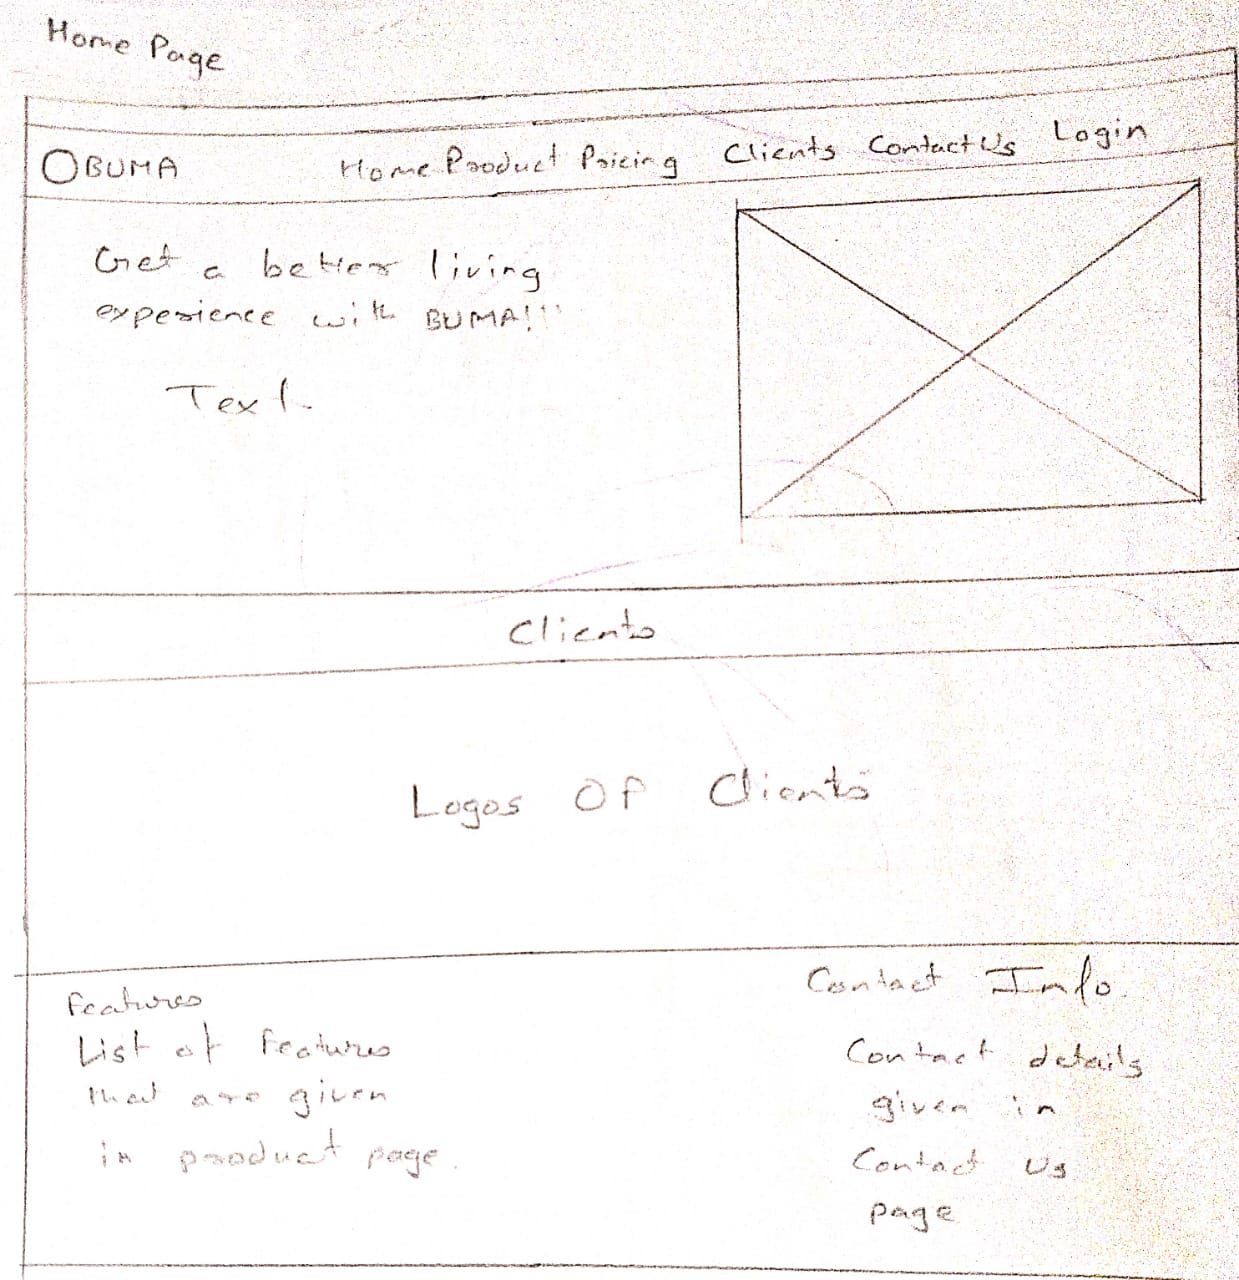 Home Page
BUMA Home Product Pricing Clients Contact Us Login
Get a better living
experience with BUMA!!!
Text
Clients
Logos Of Clients
Features
List of features
that are given
in product page.
Contact Info.
Contact details
given in
Contact Us
page